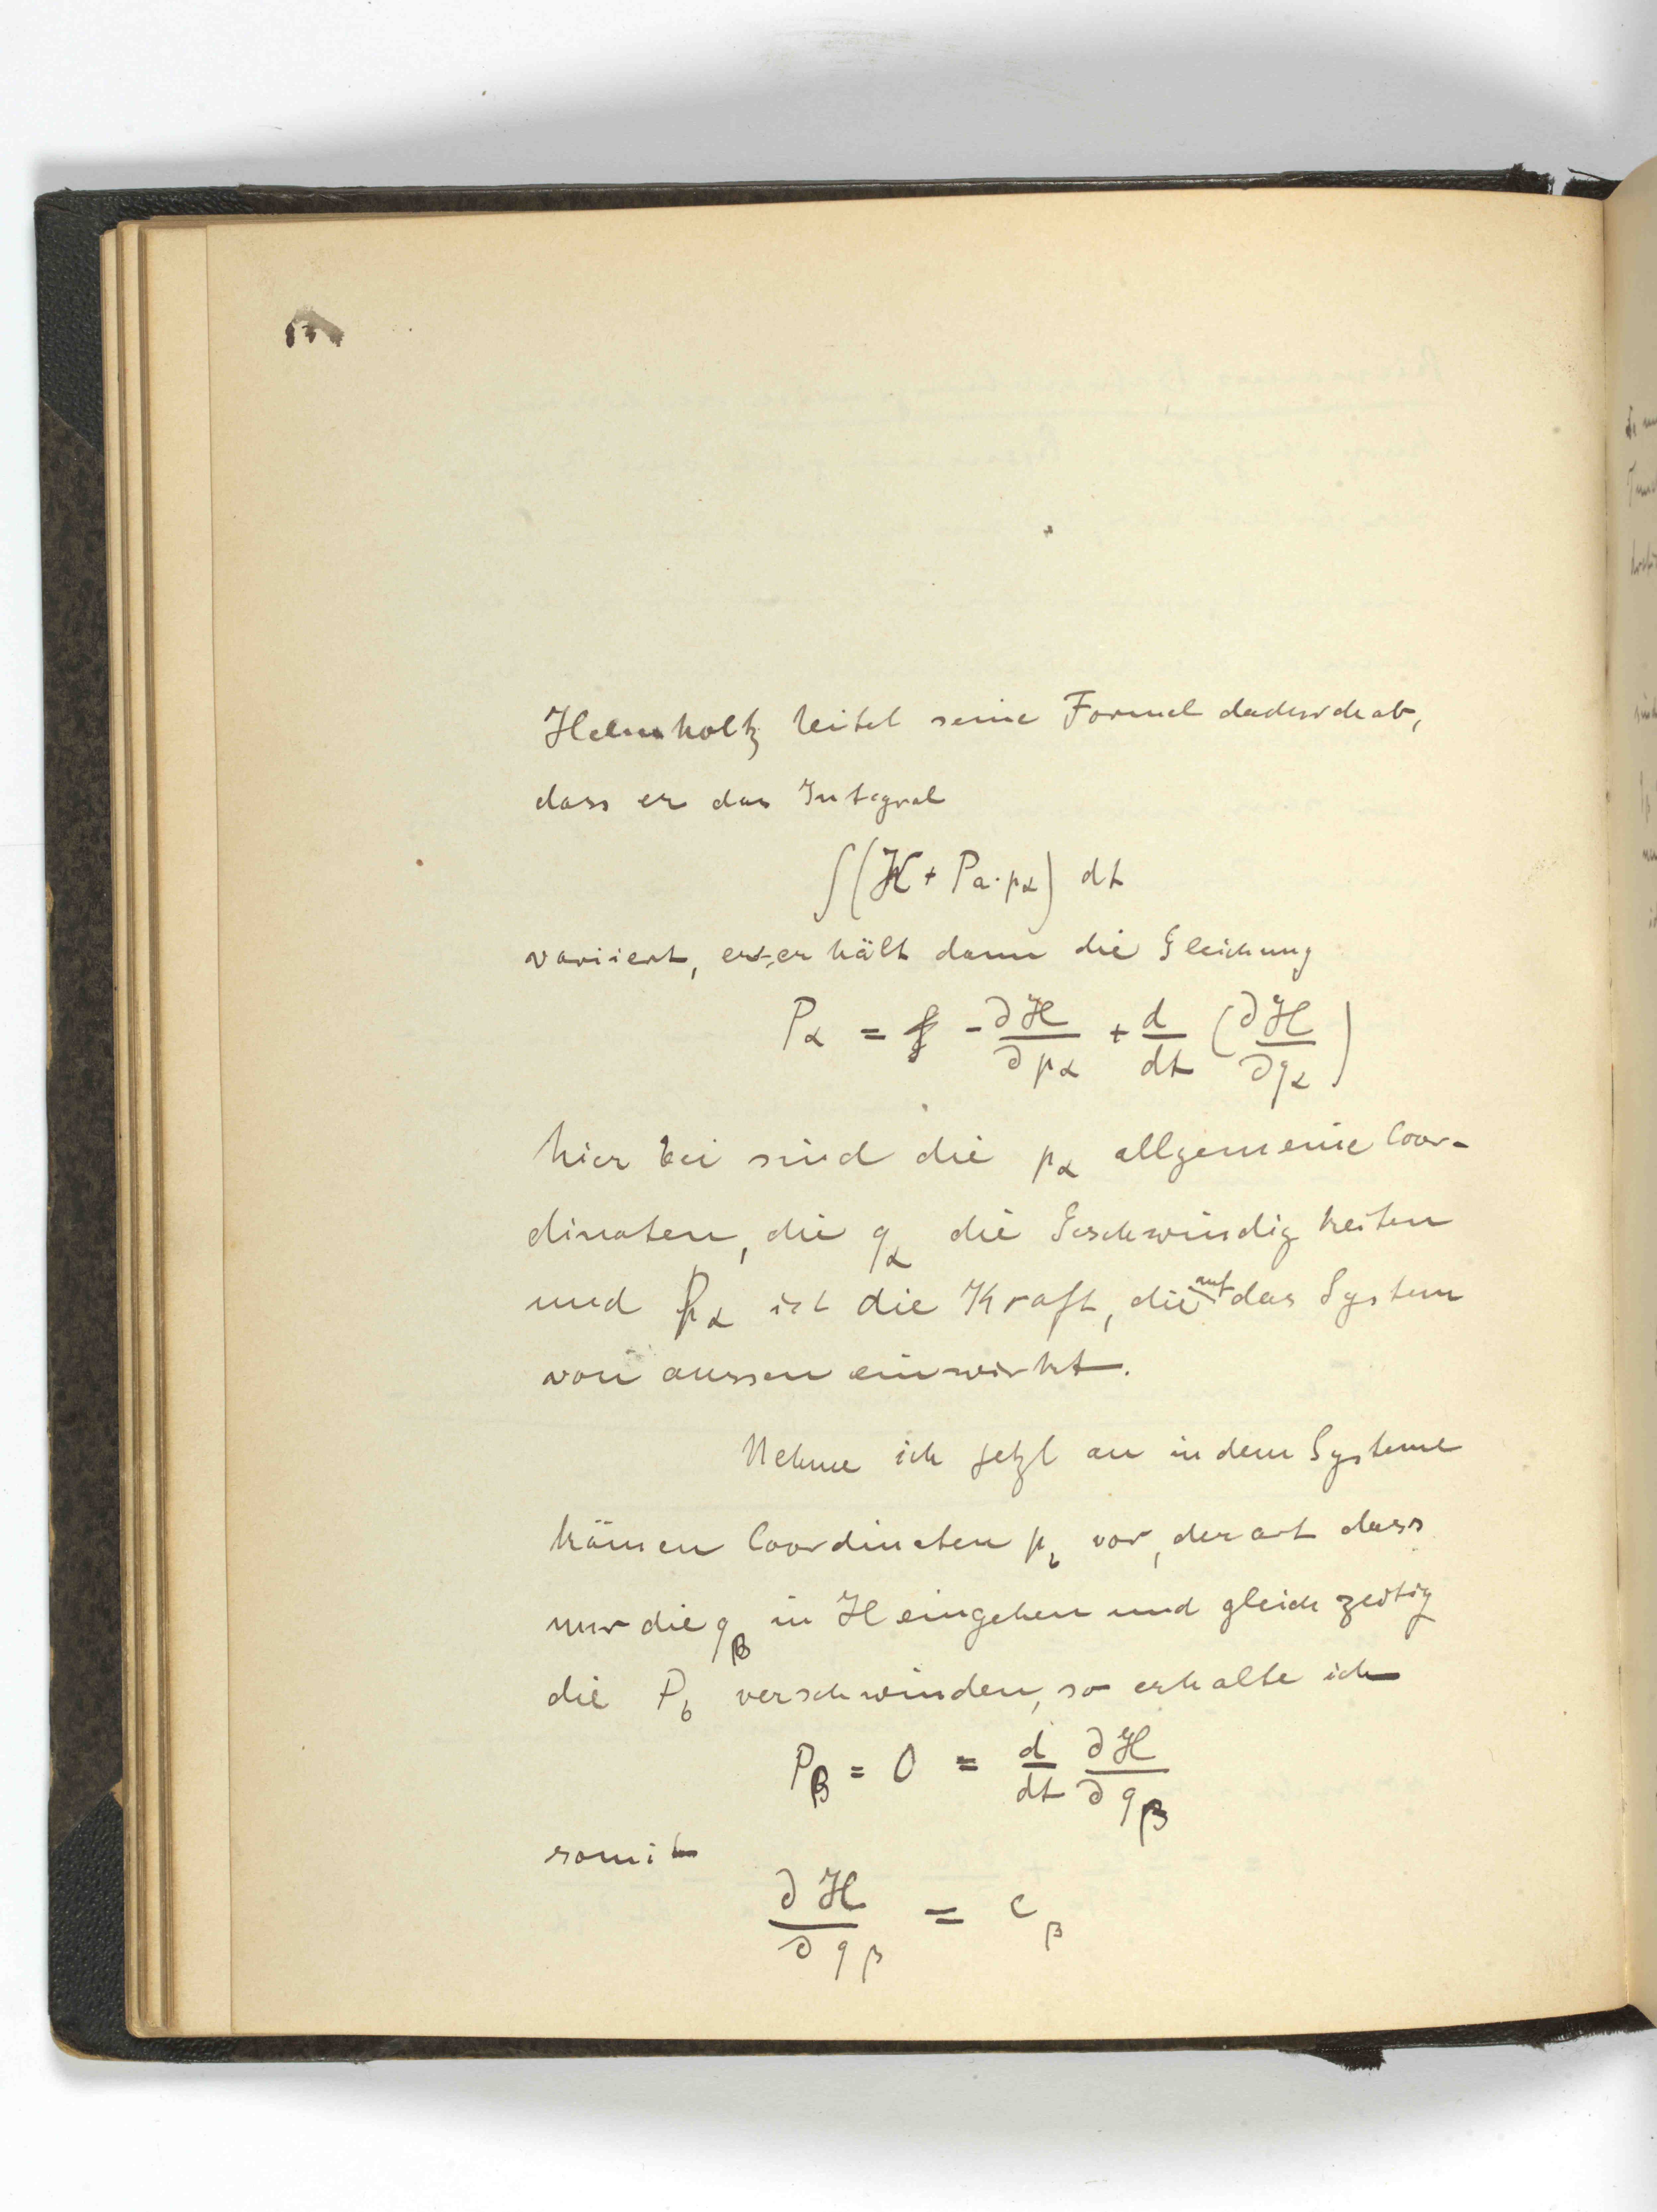 Helmholtz leitet seine Formel dadurch ab,
dass er das Integral
∫(H + Pa·pα) dt
variiert, er erhält dann die Gleichung
Pα = - ∂H/∂pα + d/dt (∂H/∂qα)
hierbei sind die pα allgemeine Coor-
dinaten, die qα die Geschwindigkeiten
und Pα ist die Kraft, die auf das System
von aussen einwirkt.
Nehme ich jetzt an in dem Systeme
kämen Coordinaten pb vor, derart dass
nur die qβ in H eingehen und gleichzeitig
die Pb verschwinden, so erhalte ich
Pβ = 0 = d/dt ∂H/∂qβ
somit
∂H/∂qβ = cβ